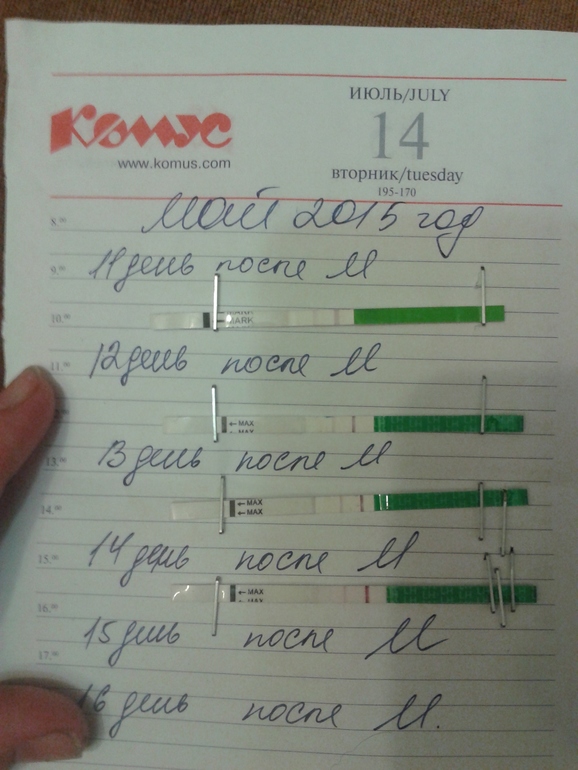 Комус
www.komus.com
ИЮЛЬ/JULY
14
вторник/tuesday
195-170
8.00 Май 2015 год
9.00 11 день после М
10.00 MARK
11.00 12 день после М
←MAX
13.00 13 день после М
14.00 ←MAX
←MAX
15.00 14 день после М
16.00 ←MAX
15 день после М
17.00
16 день после М.